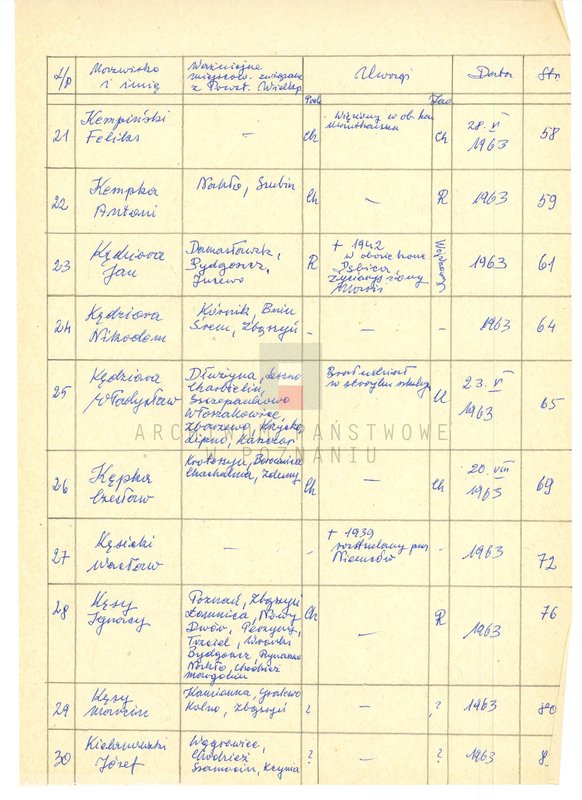 L/p Nazwisko i imię Ważniejsze miejscow. związane z Powst. Wielkop Uwagi Data Str
Poch Zaw
21 Kempiński Feliks — Ch Więziony w ob. kon Mauthausen Ch 28. VI 1963 58
22 Kempka Antoni Nakło, Szubin Ch — R 1963 59
23 Kędziora Jan Damasławek, Bydgoszcz, R + 1942 w obozie konc Dębica 1963 61
24 Kędziora Nikodem Kórnik, Bnin Śrem, Zbąszyń - — - 1963 64
25 Kędziora Władysław Dłużyna, Leszno Włoszakowice, Zbarzewo, Lipno, Brał udział w U 23. VI 1963 65
ARCHIWUM PAŃSTWOWE
W POZNANIU
26 Kępka Czesław Krotoszyn, Zduny Ch — Ch 20. VIII 1963 69
27 Kęsicki Wacław — - + 1939 rozstrzelany przez Niemców - 1963 72
28 Kęsy Ignacy Poznań, Zbąszyń Łomnica, Nowy Dwór, Perzyny, Trzciel, Bydgoszcz, Nakło, Chodzież Ch — R 1963 76
29 Kęsy Marcin Kamionna, Kolno, Zbąszyń ? — ? 1963 80
30 Józef Wągrowiec, Chodzież Szamocin, Kcynia ? — ? 1963 8